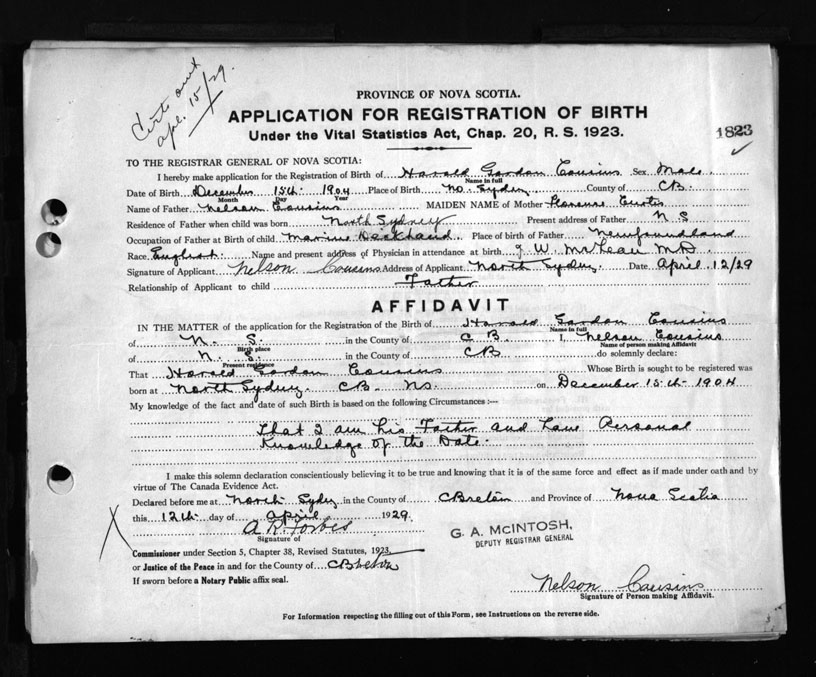 Certs out
Apl. 15/29.
PROVINCE OF NOVA SCOTIA.
APPLICATION FOR REGISTRATION OF BIRTH
Under the Vital Statistics Act, Chap. 20, R. S. 1923.
1823
TO THE REGISTRAR GENERAL OF NOVA SCOTIA:
I hereby make application for the Registration of Birth of Harold Gordon Cousins Sex Male
Name in full
Date of Birth December 15th 1904 Place of Birth No. Sydney County of CB.
Month Day Year
Name of Father Nelson Cousins MAIDEN NAME of Mother Florence Curtis
Residence of Father when child was born North Sydney Present address of Father N. S
Occupation of Father at Birth of child Marine Deckhand. Place of birth of Father Newfoundland
Race English. Name and present address of Physician in attendance at birth J. W. McLean MD.
Signature of Applicant Nelson Cousins Address of Applicant North Sydney. Date April 12/29
Relationship of Applicant to child Father
AFFIDAVIT
IN THE MATTER of the application for the Registration of the Birth of Harold Gordon Cousins
Name in full
of N. S. in the County of C B. I, Nelson Cousins
Birth place Name of person making Affidavit
of N. S. in the County of CB do solemnly declare:
Present residence
That Harold Gordon Cousins Whose Birth is sought to be registered was
born at North Sydney. CB. NS. on December 15th 1904
My knowledge of the fact and date of such Birth is based on the following Circumstances :—
That I am his Father and have Personal
Knowledge of the Date.
I make this solemn declaration conscientiously believing it to be true and knowing that it is of the same force and effect as if made under oath and by
virtue of The Canada Evidence Act.
Declared before me at North Sydney in the County of CBreton and Province of Nova Scotia
this 12th day of April 1929.
A. R. Forbes
Signature of
G. A. McINTOSH,
DEPUTY REGISTRAR GENERAL
Commissioner under Section 5, Chapter 38, Revised Statutes, 1923,
or Justice of the Peace in and for the County of CBreton
If sworn before a Notary Public affix seal.
Nelson Cousins
Signature of Person making Affidavit.
For Information respecting the filling out of this Form, see Instructions on the reverse side.